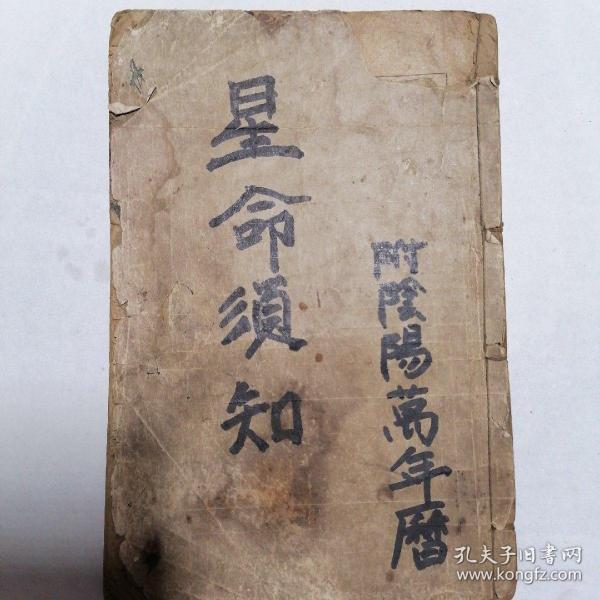 附陰陽萬年曆
星命須知
孔夫子旧書网
www.kongfz.com